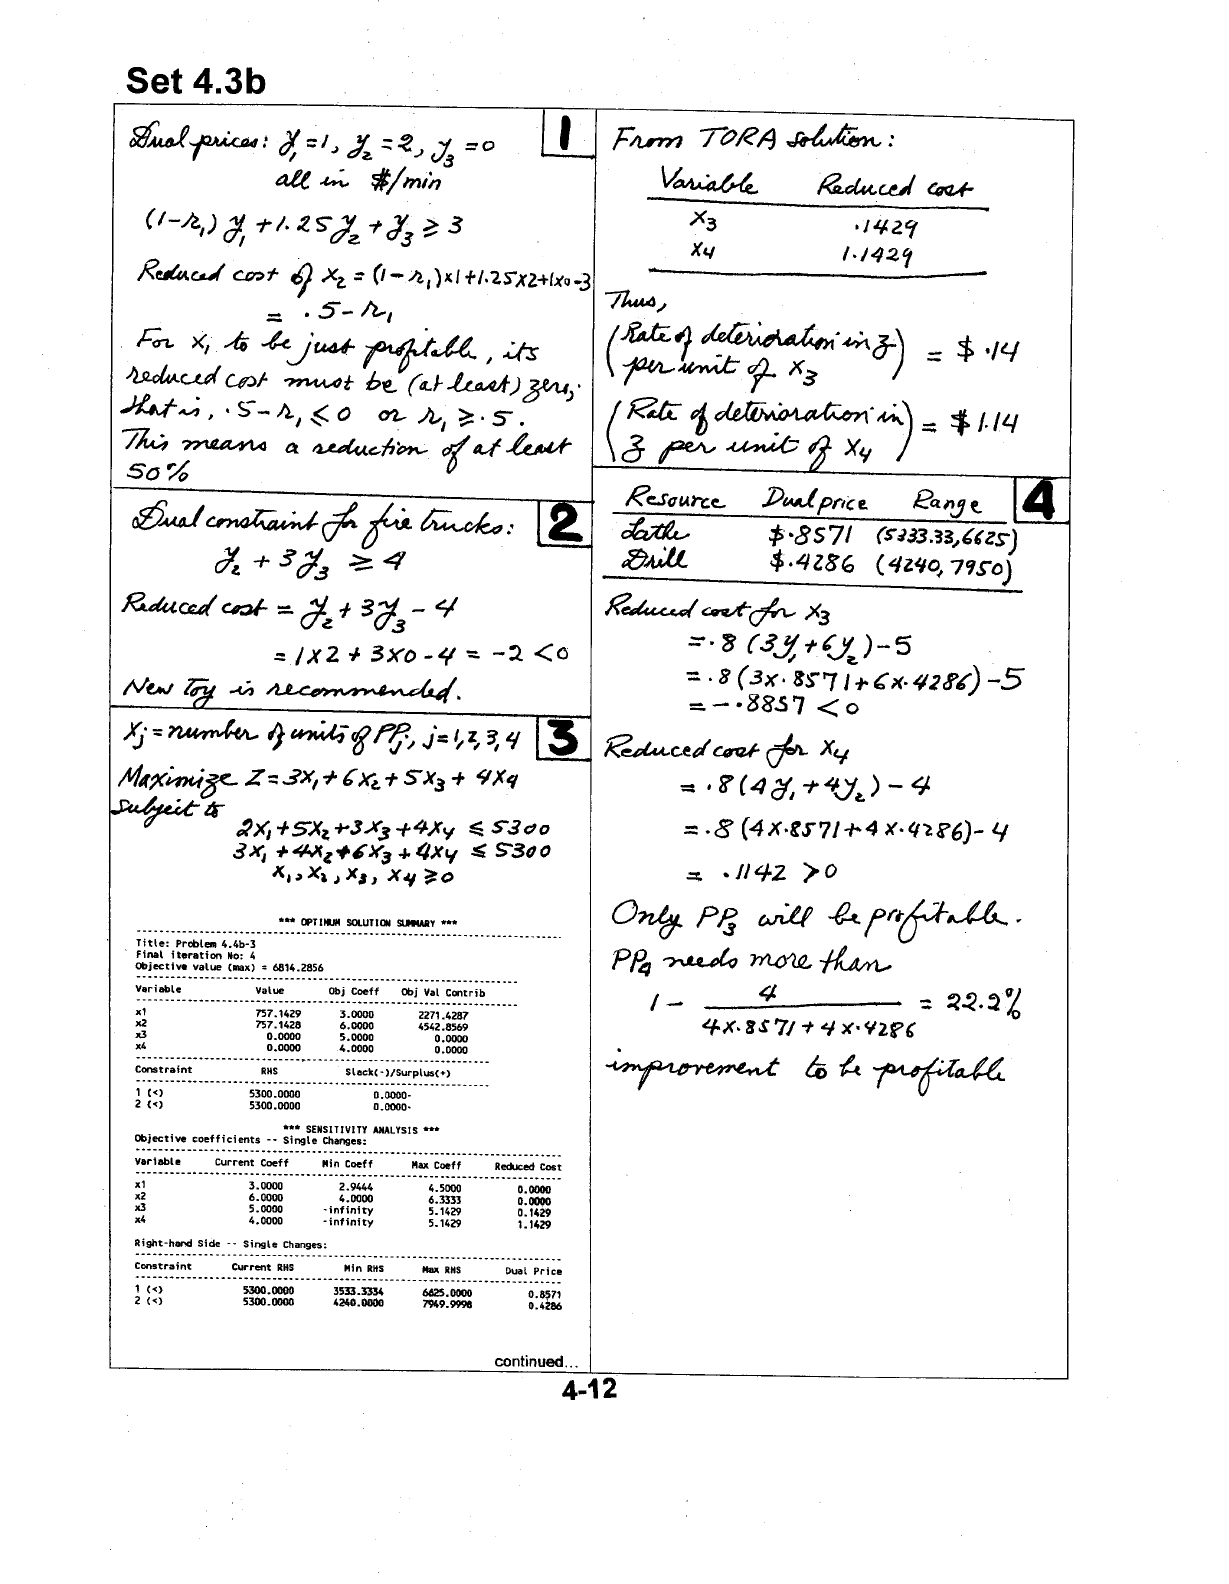 Set 4.3b
1
Dual prices: y₁ = 1, y₂ = 2, y₃ = 0
all in $/min
(1-r₁) y₁ + 1.25 y₂ + y₃ ≥ 3
Reduced cost of x₂ = (1-r₁)x1+1.25x2+1x0-3
= .5-r₁
For x₁ to be just profitable, its
reduced cost must be (at least) zero;
that is, .5-r₁ ≤ 0 or r₁ ≥ .5.
This means a reduction of at least
50%
2
Dual constraint for fire trucks:
y₂ + 3y₃ ≥ 4
Reduced cost = y₂ + 3y₃ - 4
= 1x2 + 3x0 - 4 = -2 < 0
New Toy is recommended.
3
Xj = number of units of PPj, j=1,2,3,4
Maximize Z = 3X₁ + 6X₂ + 5X₃ + 4X4
Subject to
2X₁ + 5X₂ + 3X₃ + 4X4 ≤ 5300
3X₁ + 4X₂ + 6X₃ + 4X4 ≤ 5300
X₁, X₂, X₃, X4 ≥ 0
*** OPTIMUM SOLUTION SUMMARY ***
Title: Problem 4.4b-3
Final iteration No: 4
Objective value (max) = 6814.2856
Variable Value Obj Coeff Obj Val Contrib
x1 757.1429 3.0000 2271.4287
x2 757.1428 6.0000 4542.8569
x3 0.0000 5.0000 0.0000
x4 0.0000 4.0000 0.0000
Constraint RHS Slack(-)/Surplus(+)
1 (<) 5300.0000 0.0000-
2 (<) 5300.0000 0.0000-
*** SENSITIVITY ANALYSIS ***
Objective coefficients -- Single Changes:
Variable Current Coeff Min Coeff Max Coeff Reduced Cost
x1 3.0000 2.9444 4.5000 0.0000
x2 6.0000 4.0000 6.3333 0.0000
x3 5.0000 -infinity 5.1429 0.1429
x4 4.0000 -infinity 5.1429 1.1429
Right-hand Side -- Single Changes:
Constraint Current RHS Min RHS Max RHS Dual Price
1 (<) 5300.0000 3533.3334 6625.0000 0.8571
2 (<) 5300.0000 4240.0000 7949.9998 0.4286
continued...
From TORA solution:
Variable Reduced cost
X₃ .1429
X4 1.1429
Thus,
(Rate of deterioration in z
per unit of X₃) = $ .14
(Rate of deterioration in
z per unit of X4) = $ 1.14
4
Resource Dual price Range
Lathe $.8571 (5333.33,6625)
Drill $.4286 (4240, 7950)
Reduced cost for X₃
= .8 (3y₁ + 6y₂) - 5
= .8 (3x.8571 + 6x.4286) - 5
= -.8857 < 0
Reduced cost for X4
= .8 (4y₁ + 4y₂) - 4
= .8 (4x.8571 + 4x.4286) - 4
= .1142 > 0
Only PP₃ will be profitable.
PP4 needs more than
1 - 4 / (4x.8571 + 4x.4286) = 22.2%
improvement to be profitable
4-12